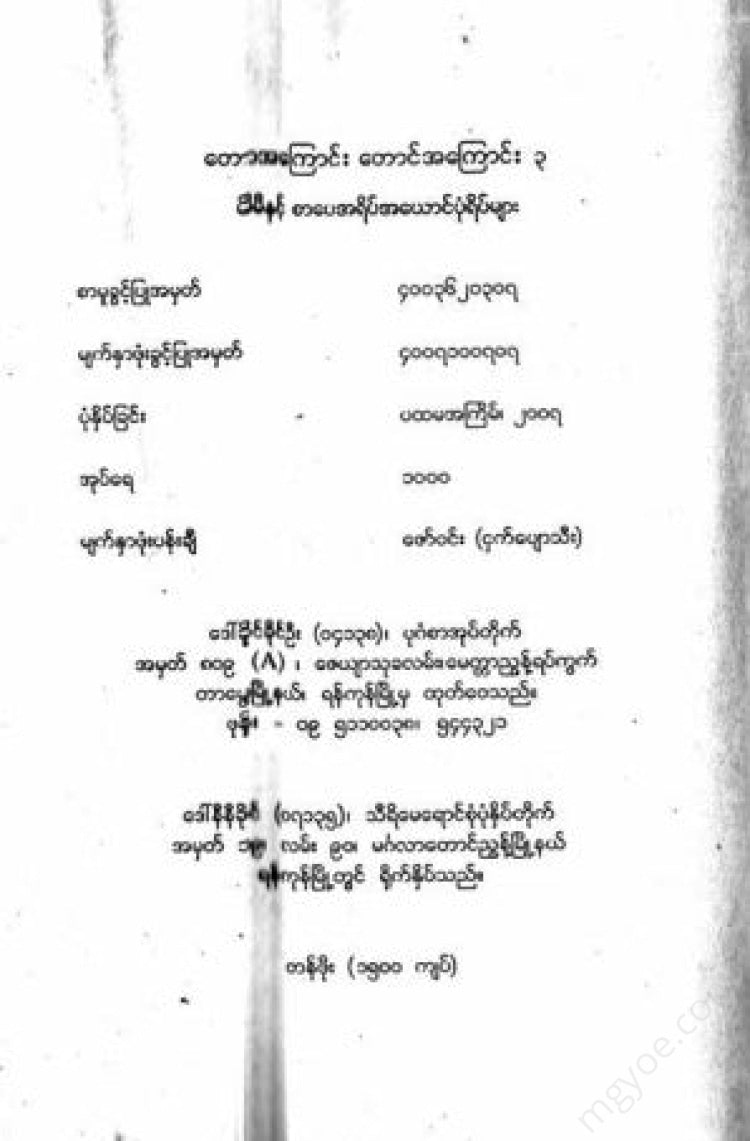 တောအကြောင်း တောင်အကြောင်း ၃
မိမိနှင့် စာပေအရိပ်အယောင်ပုံရိပ်များ
စာမူခွင့်ပြုအမှတ် ၄၀၀၃၆၂၀၃၀၇
မျက်နှာဖုံးခွင့်ပြုအမှတ် ၄၀၀၇၁၀၀၇၀၇
ပုံနှိပ်ခြင်း - ပထမအကြိမ်၊ ၂၀၀၇
အုပ်ရေ ၁၀၀၀
မျက်နှာဖုံးပန်းချီ ဇော်ဝင်း (ငှက်ပျောသီး)
ဒေါ်ခိုင်ခိုင်ဦး (၀၄၁၃၈)၊ ပုဂံစာအုပ်တိုက်
အမှတ် ၈၀၉ (A) ၊ ဇေယျာသုခလမ်း၊ မေတ္တာညွန့်ရပ်ကွက်
တာမွေမြို့နယ်၊ ရန်ကုန်မြို့မှ ထုတ်ဝေသည်။
ဖုန်း - ၀၉ ၅၁၁၀၀၃၈၊ ၅၄၄၃၂၁
(၀၇၁၃၅)၊ သီရိမေရောင်စုံပုံနှိပ်တိုက်
အမှတ် လမ်း ၉၀၊ မင်္ဂလာတောင်ညွန့်မြို့နယ်
ရန်ကုန်မြို့တွင် ရိုက်နှိပ်သည်။
တန်ဖိုး (၁၅၀၀ ကျပ်)
mgyoe.co